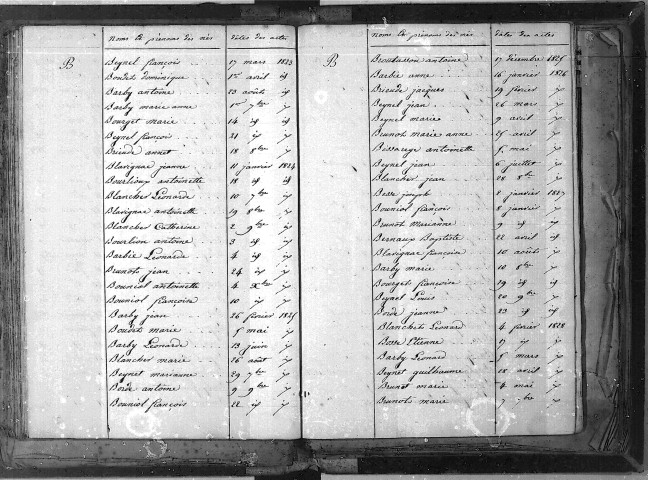 noms et prénoms des nés dates des actes
B
Beynel françois 17 mars 1823
Boudet dominique 1er avril id
Barby antoine 23 août id
Barby marie anne 1er 7bre
Bourget marie 14 id id
Beynel françois 21 id
Briude annet 18 8bre
Blavignac jeanne 11 janvier 1824
Bourlioux antoinette 18 id id
Blancher Léonard 10 7bre
Blavignac antoinette 19 8bre
Blancher Catherine 2 9bre
Bourlion antoine 3 id
Barbie Léonarde 4 id
Brunots jean 24 id
Bouniol antoinette 4 Xbre
Bouniol françoise 10 id
Barby jean 26 février 1825
Boudet marie 5 mai
Barby Léonarde 13 juin
Blancher marie 26 août
Beynet marianne 29 7bre
Borde antoine 9 9bre
Bouniol françois 22 id
noms et prénoms des nés dates des actes
B
antoine 17 décembre 1825
Barbie anne 16 janvier 1826
Briude jacques 19 février
Beynel jean 26 mars
Beynel marie 9 avril
Brunot marie anne 25 avril
antoinette 5 mai
Beynel jean 6 juillet
Blancher jean 22 8bre
Besse joseph 2 janvier 1827
Bouniol françois 8 janvier
Brunot Marianne 9 id
Bernaux Baptiste 22 avril id
Blavignac françoise 10 août
Barby marie 10 8bre
Bourget françoise 19 id
Beynel Louis 20 9bre
Borde jeanne 23 id id
Blanchet Léonard 4 février 1828
Basse Etienne 17 id
Barby Léonard 5 mars
Beynet guilhaume 18 avril
Brunet marie 4 mai
Brunots marie 7 7bre